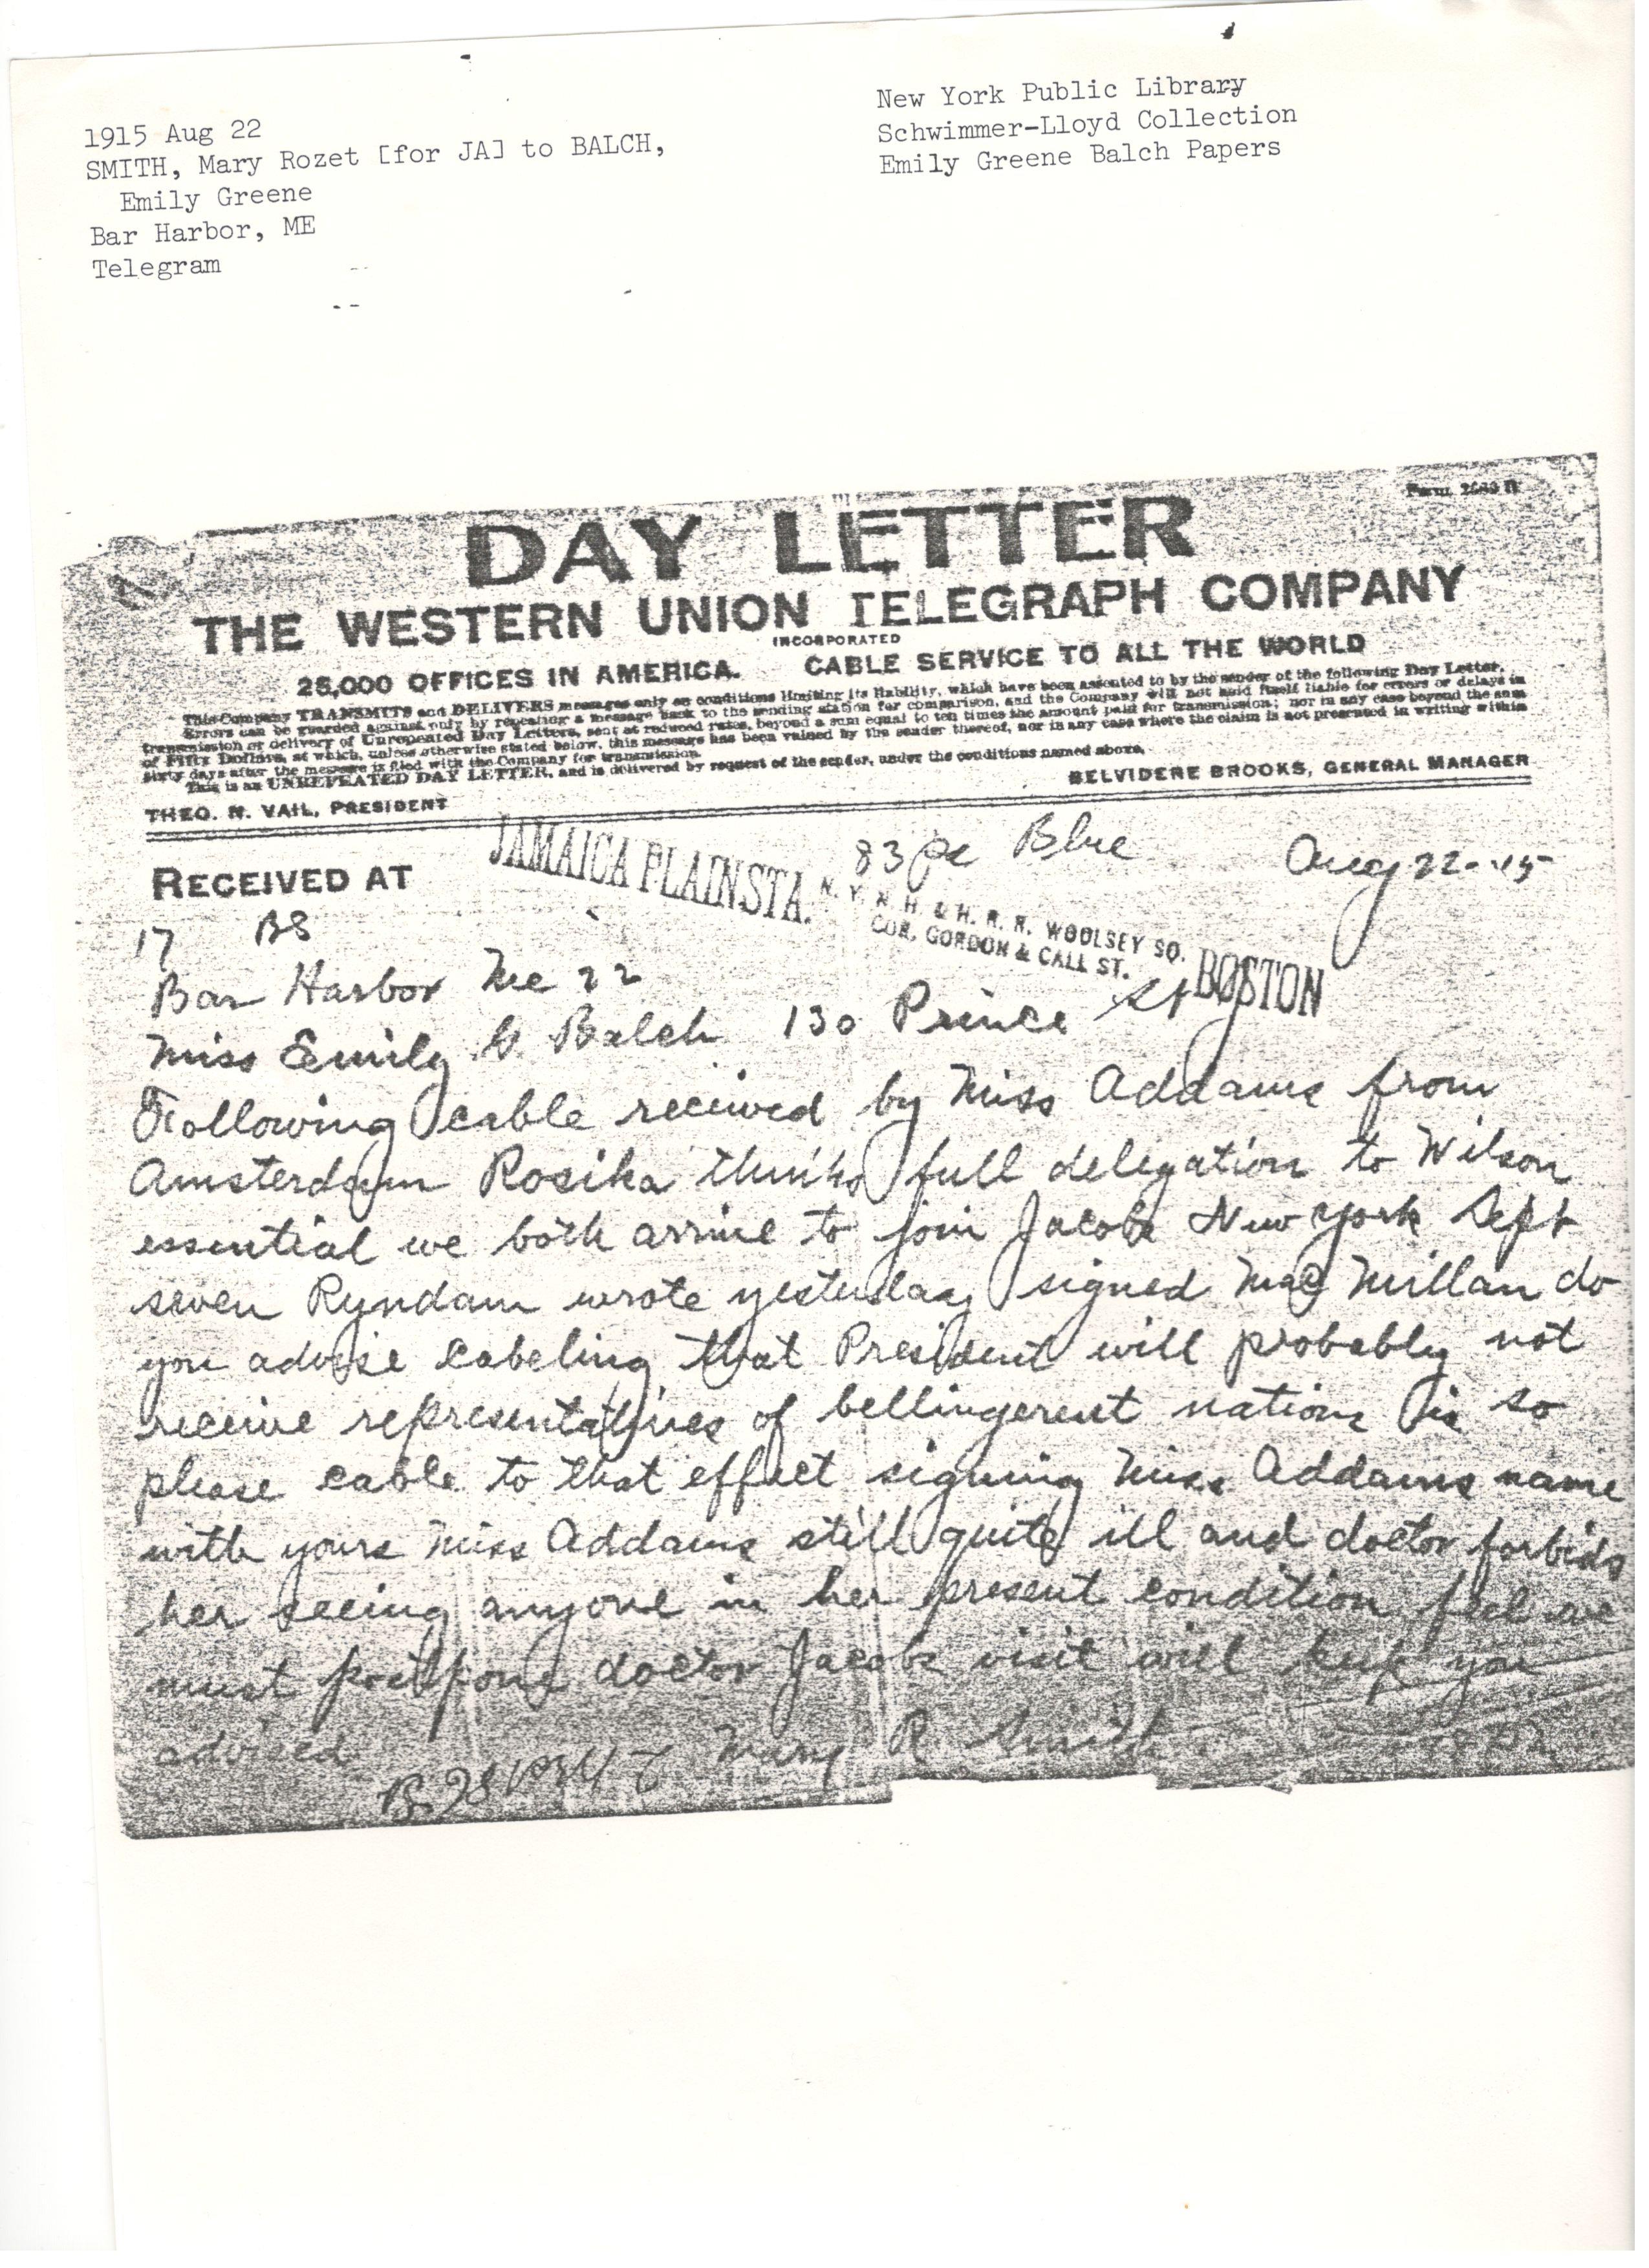 1915 Aug 22
SMITH, Mary Rozet [for JA] to BALCH,
Emily Greene
Bar Harbor, ME
Telegram
New York Public Library
Schwimmer-Lloyd Collection
Emily Greene Balch Papers
Form 2589 B
DAY LETTER
THE WESTERN UNION TELEGRAPH COMPANY
INCORPORATED
25,000 OFFICES IN AMERICA. CABLE SERVICE TO ALL THE WORLD
This Company TRANSMITS and DELIVERS messages only on conditions limiting its liability, which have been assented to by the sender of the following Day Letter.
Errors can be guarded against only by repeating a message back to the sending station for comparison, and the Company will not hold itself liable for errors or delays in
transmission or delivery of Unrepeated Day Letters, sent at reduced rates, beyond a sum equal to ten times the amount paid for transmission; nor in any case beyond the sum
of Fifty Dollars, at which, unless otherwise stated below, this message has been valued by the sender thereof, nor in any case where the claim is not presented in writing within
sixty days after the message is filed with the Company for transmission.
This is an UNREPEATED DAY LETTER, and is delivered by request of the sender, under the conditions named above.
THEO. N. VAIL, PRESIDENT BELVIDERE BROOKS, GENERAL MANAGER
RECEIVED AT
JAMAICA PLAIN STA.
N. Y. N. H. & H. R. R. WOOLSEY SQ.
COR. GORDON & CALL ST.
BOSTON
83 Blue Aug 22-15
17 BS
Bar Harbor Me 22
Miss Emily G. Balch 130 Prince St
Following cable received by Miss Addams from
Amsterdam Rosika thinks full delegation to Wilson
essential we both arrive to join Jacobs New York Sept
seven Ryndam wrote yesterday signed Mac Millan do
you advise cabeling that President will probably not
receive representatives of bellingerent nations is so
please cable to that effect signing Miss Addams name
with yours Miss Addams still quite ill and doctor forbids
her seeing anyone in her present condition feel we
must postpone doctor Jacobs visit will keep you
advised
Mary R Smith